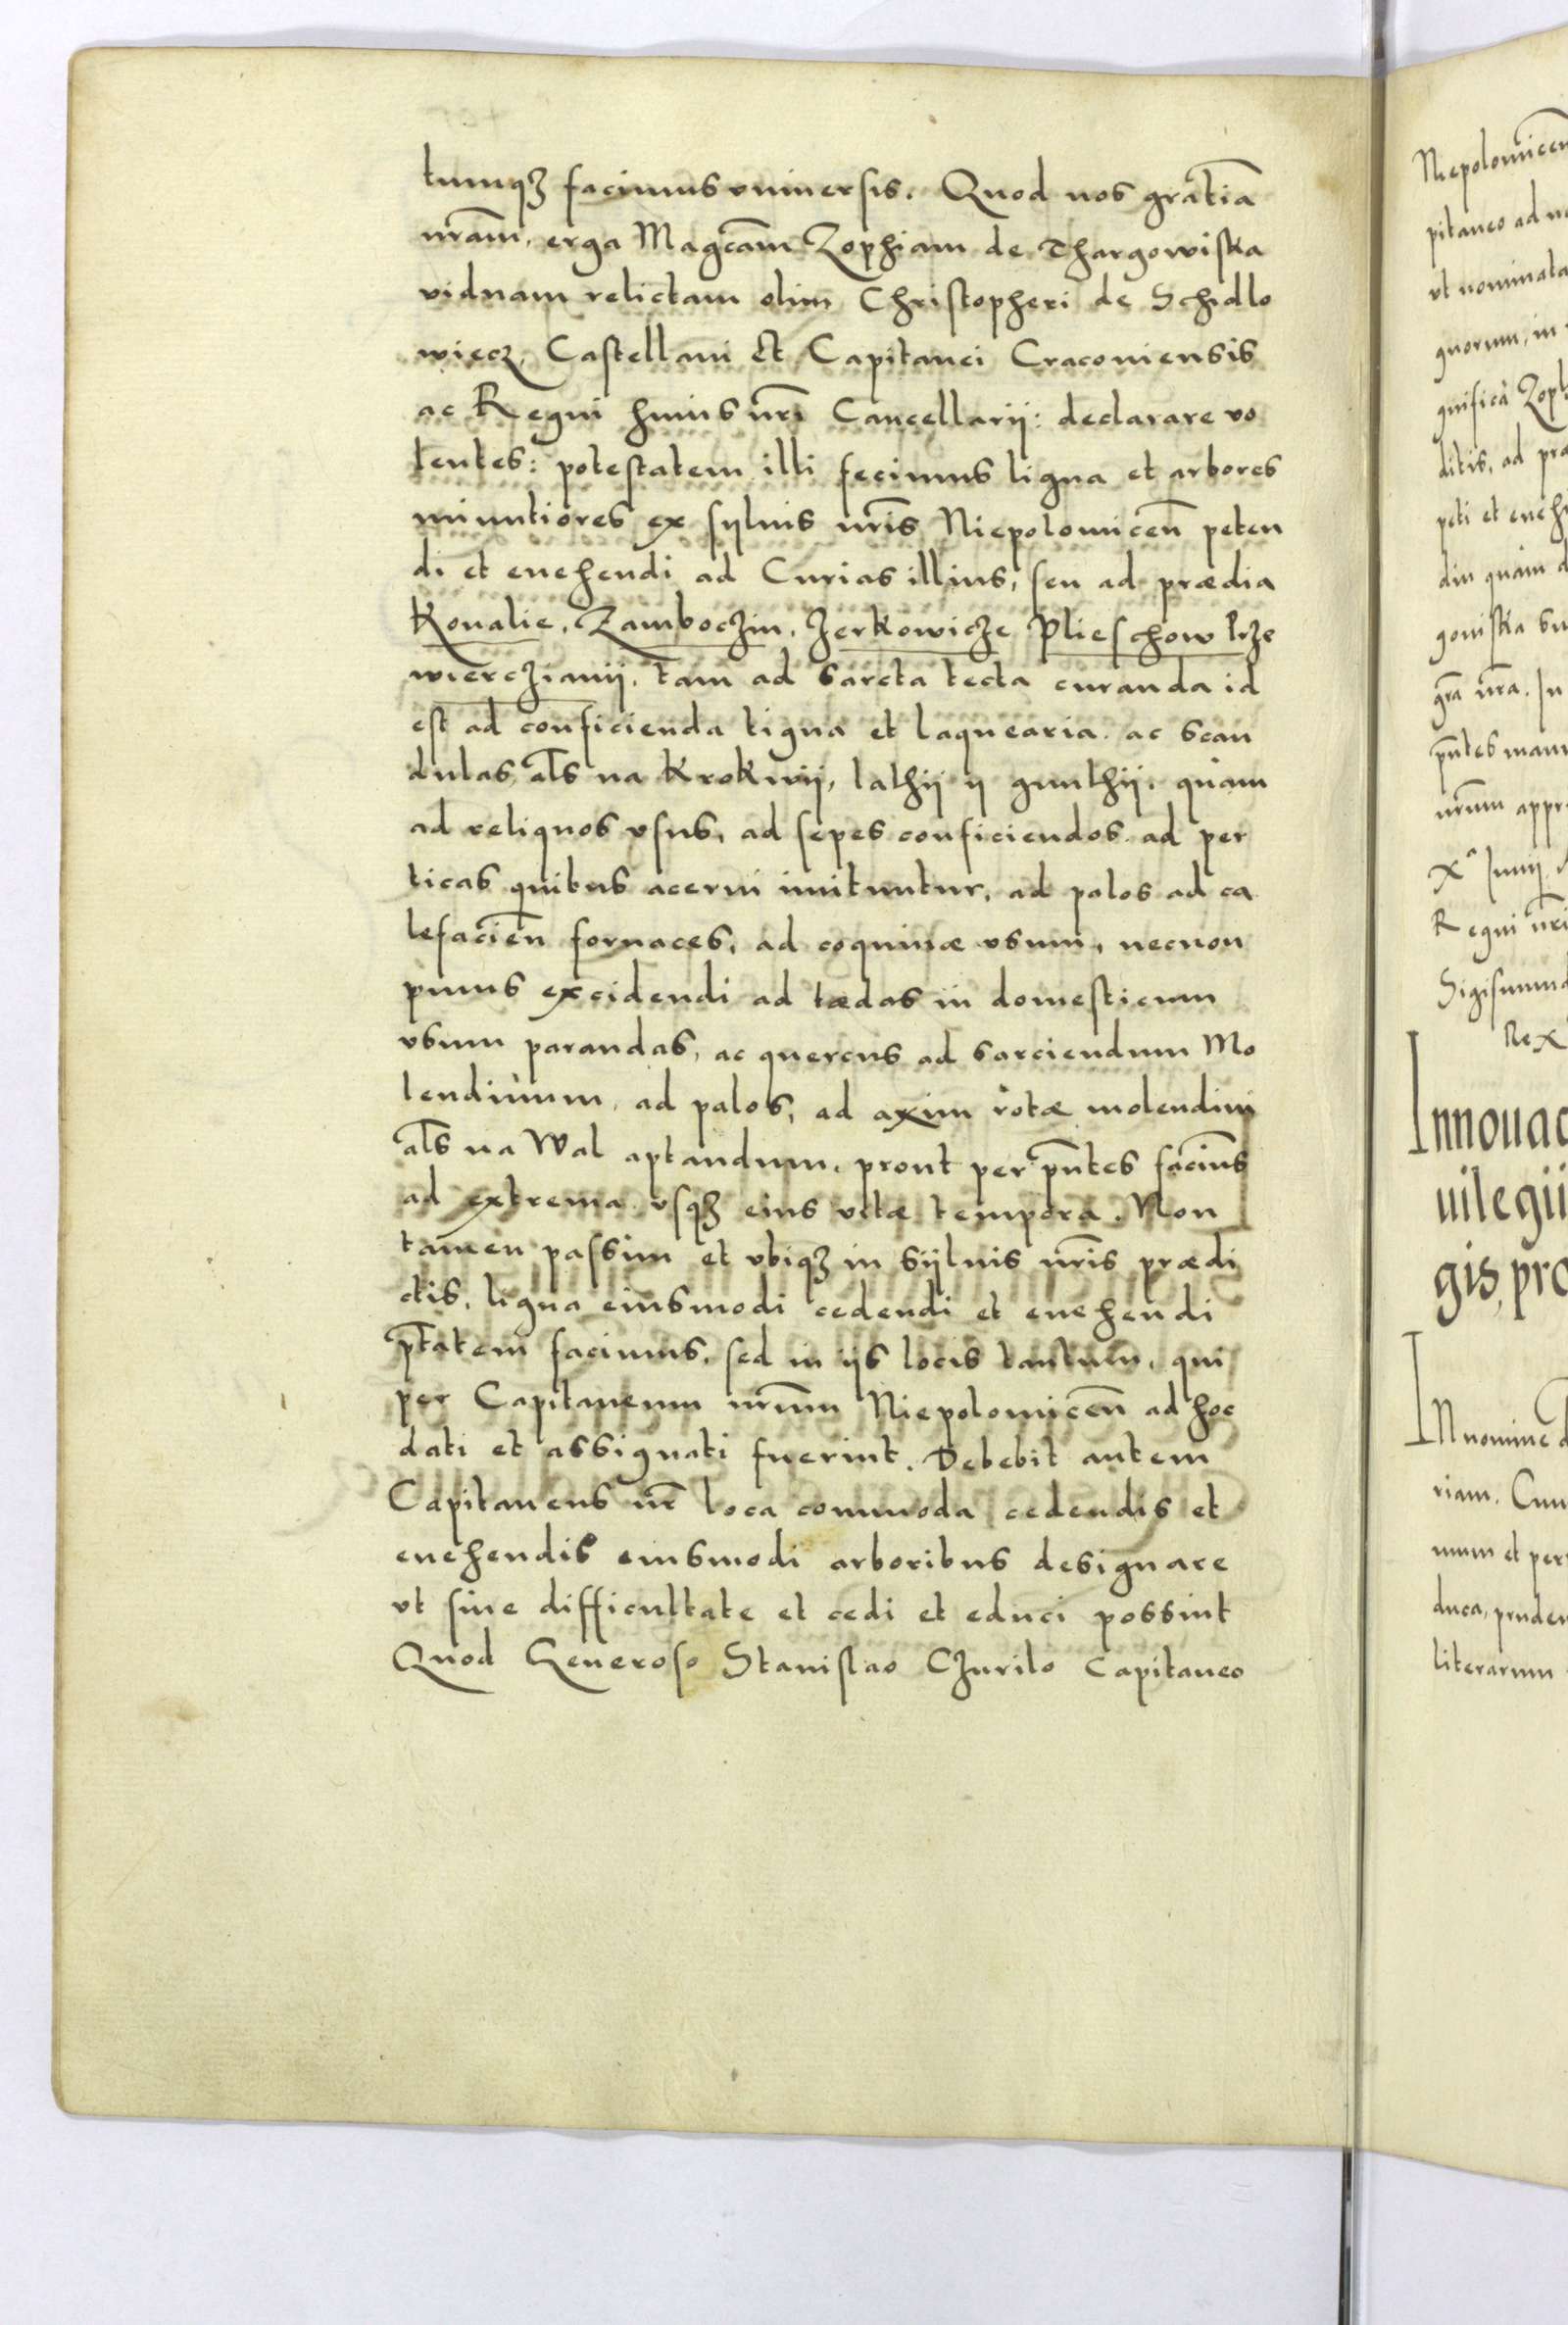 tumqȝ facimus vniuersis. Quod nos gratiā
nr̄am, erga Magcām Zophiam de Thargowiska
viduam relictam olim Christopheri de Schidlo
wiecz, Castellani et Capitanei Cracouiensis
ac Regni huius nr̄i Cancellarij: declarare vo
lentes: potestatem illi fecimus ligna et arbores
minutiores ex syluis nr̄is Niepolomicen̄ peten
di et euehendi ad Curias illius, seu ad prædia
Koualie, Zamboczin, Jerkowicze Plieschow Irze
wierczianij, tam ad sarcta tecta curanda id
est ad conficienda tigna et laquearia ac scan
dulas, al̄s na Krokwij, lathij ij gunthij, quam
ad reliquos vsus, ad sepes conficiendos ad per
ticas quibus acerui inituntur, ad palos ad ca
lefacien̄ fornaces, ad coquinæ vsum, necnon
pinus excidendi ad tædas in domesticum
vsum parandas, ac quercus ad sarciendum Mo
lendinum, ad palos, ad axim rotæ molendini
al̄s na Wal aptandum, prout per pn̄tes facim̄s
ad extrema vsqȝ eius vitæ tempora. Non
tamen passim et vbiqȝ in syluis nr̄is prædi
ctis, ligna eiusmodi cedendi et euehendi
pt̄atem facimus, sed in ijs locis tantum, qui
per Capitaneum nr̄um Niepolomicen̄ ad hoc
dati et assignati fuerint. Debebit autem
Capitaneus nr̄ loca commoda cedendis et
euehendis eiusmodi arboribus designare
vt sine difficultate et cedi et educi possint
Quod Generoso Stanislao Czurilo Capitaneo
Niepolomicen
pitaneo ad n
vt nominata
quorum, in
gnifica Zoph
ditis, ad pra
peti et eueh
diu quam d
gouiska su
gr̄a nr̄a. In
pn̄tes manu
nr̄um appr
Xᵃ Junij
Regni nr̄i
Sigismund
Rex
Innouac
uilegii
gis, pro
IN nomine d
riam. Cum
mum et per
duca, pruden
literarum